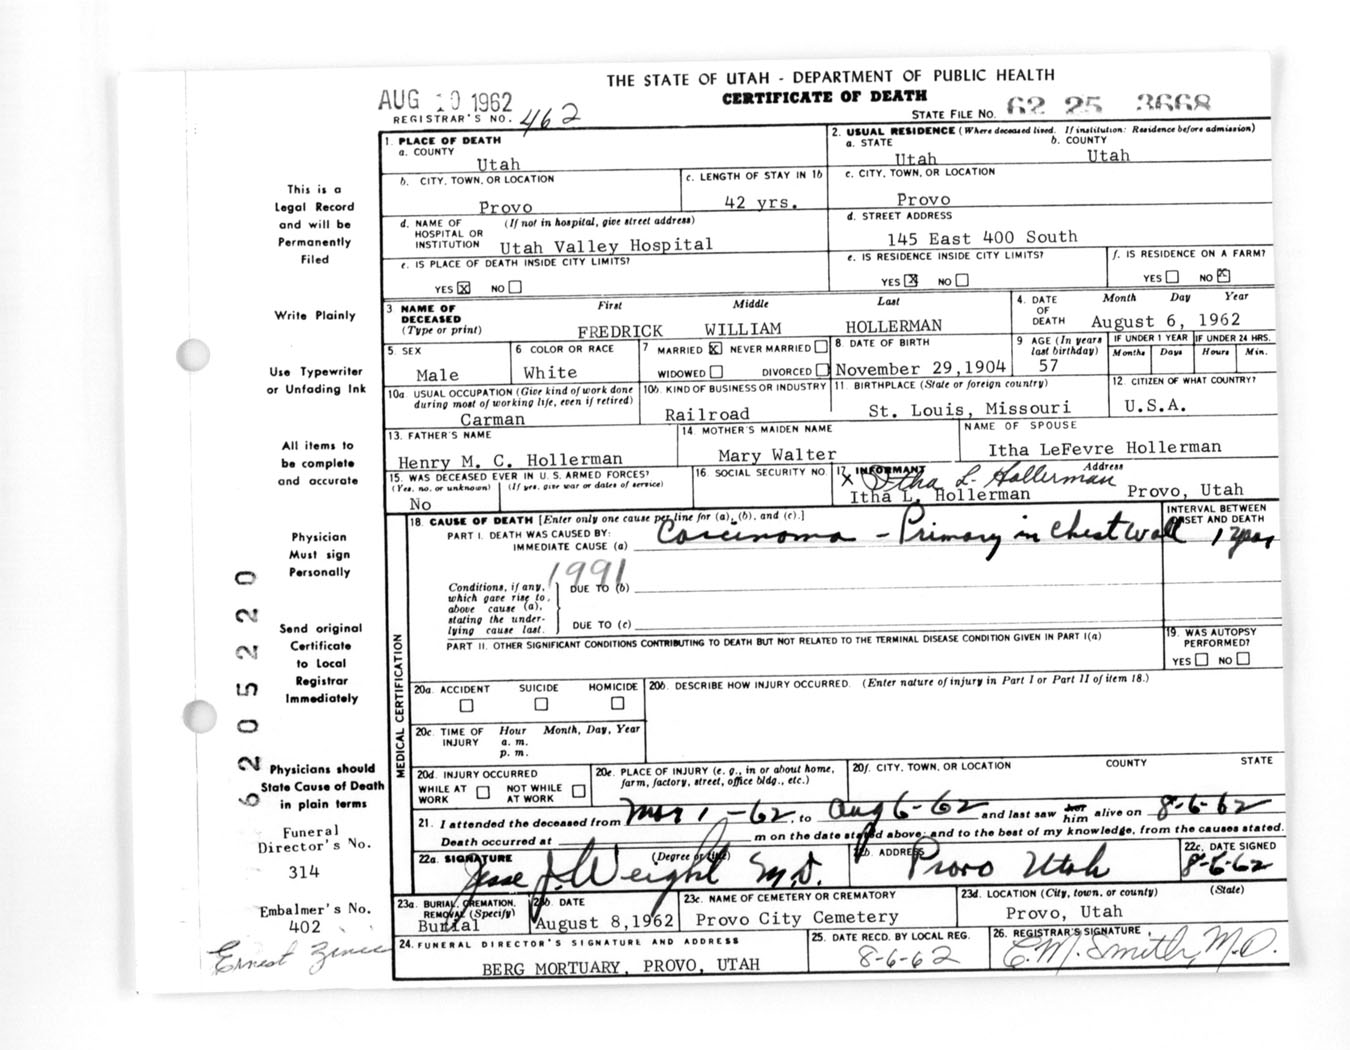 THE STATE OF UTAH - DEPARTMENT OF PUBLIC HEALTH
CERTIFICATE OF DEATH
AUG 10 1962
REGISTRAR'S NO. 462
STATE FILE NO. 62 25 3668
1. PLACE OF DEATH
a. COUNTY
Utah
2. USUAL RESIDENCE (Where deceased lived. If institution: Residence before admission)
a. STATE b. COUNTY
Utah Utah
b. CITY, TOWN, OR LOCATION
Provo
c. LENGTH OF STAY IN 1b
42 yrs.
c. CITY, TOWN, OR LOCATION
Provo
d. NAME OF (If not in hospital, give street address)
HOSPITAL OR
INSTITUTION Utah Valley Hospital
d. STREET ADDRESS
145 East 400 South
e. IS PLACE OF DEATH INSIDE CITY LIMITS?
YES X NO
e. IS RESIDENCE INSIDE CITY LIMITS?
YES X NO
f. IS RESIDENCE ON A FARM?
YES NO X
3 NAME OF First Middle Last
DECEASED
(Type or print) FREDRICK WILLIAM HOLLERMAN
4. DATE Month Day Year
OF
DEATH August 6, 1962
5. SEX
Male
6 COLOR OR RACE
White
7 MARRIED X NEVER MARRIED
WIDOWED DIVORCED
8. DATE OF BIRTH
November 29,1904
9 AGE (In years
last birthday)
57
IF UNDER 1 YEAR IF UNDER 24 HRS.
Months Days Hours Min.
10a. USUAL OCCUPATION (Give kind of work done
during most of working life, even if retired)
Carman
10b. KIND OF BUSINESS OR INDUSTRY
Railroad
11. BIRTHPLACE (State or foreign country)
St. Louis, Missouri
12. CITIZEN OF WHAT COUNTRY?
U.S.A.
13. FATHER'S NAME
Henry M. C. Hollerman
14. MOTHER'S MAIDEN NAME
Mary Walter
NAME OF SPOUSE
Itha LeFevre Hollerman
15. WAS DECEASED EVER IN U.S. ARMED FORCES?
(Yes, no, or unknown) (If yes, give war or dates of service)
No
16. SOCIAL SECURITY NO.
17. INFORMANT Address
X Itha L. Hollerman
Itha L. Hollerman Provo, Utah
MEDICAL CERTIFICATION
18. CAUSE OF DEATH [Enter only one cause per line for (a), (b), and (c).]
INTERVAL BETWEEN
ONSET AND DEATH
PART I. DEATH WAS CAUSED BY:
IMMEDIATE CAUSE (a) Carcinoma - Primary in Chest Wall 1 year
1991
Conditions, if any,
which gave rise to
above cause (a),
stating the under-
lying cause last.
DUE TO (b)
DUE TO (c)
PART II. OTHER SIGNIFICANT CONDITIONS CONTRIBUTING TO DEATH BUT NOT RELATED TO THE TERMINAL DISEASE CONDITION GIVEN IN PART I(a)
19. WAS AUTOPSY
PERFORMED?
YES NO
20a. ACCIDENT SUICIDE HOMICIDE
20b. DESCRIBE HOW INJURY OCCURRED. (Enter nature of injury in Part I or Part II of item 18.)
20c. TIME OF Hour Month, Day, Year
INJURY a. m.
p. m.
20d. INJURY OCCURRED
WHILE AT NOT WHILE
WORK AT WORK
20e. PLACE OF INJURY (e. g., in or about home,
farm, factory, street, office bldg., etc.)
20f. CITY, TOWN, OR LOCATION COUNTY STATE
21. I attended the deceased from Mar 1 - 62, to Aug 6-62 and last saw her him alive on 8-6-62
Death occurred at m on the date stated above; and to the best of my knowledge, from the causes stated.
22a. SIGNATURE (Degree or title)
Jesse J. Weight M.D.
22b. ADDRESS
Provo Utah
22c. DATE SIGNED
8-6-62
23a. BURIAL, CREMATION,
REMOVAL (Specify)
Burial
23b. DATE
August 8,1962
23c. NAME OF CEMETERY OR CREMATORY
Provo City Cemetery
23d. LOCATION (City, town, or county) (State)
Provo, Utah
24. FUNERAL DIRECTOR'S SIGNATURE AND ADDRESS
BERG MORTUARY, PROVO, UTAH
25. DATE RECD. BY LOCAL REG.
8-6-62
26. REGISTRAR'S SIGNATURE
C.M. Smith, M.D.
This is a
Legal Record
and will be
Permanently
Filed
Write Plainly
Use Typewriter
or Unfading Ink
All items to
be complete
and accurate
Physician
Must sign
Personally
Send original
Certificate
to Local
Registrar
Immediately
Physicians should
State Cause of Death
in plain terms
Funeral
Director's No.
314
Embalmer's No.
402
Ernest
6 2 0 5 2 2 0